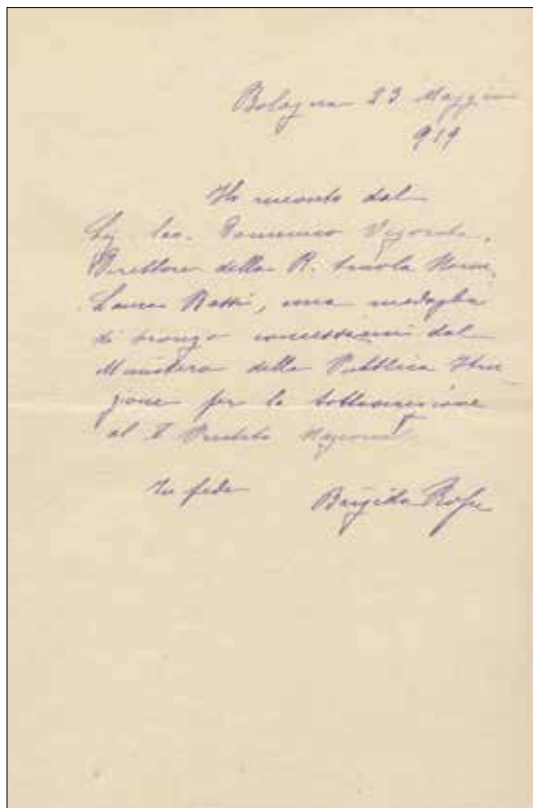 Bologna 23 Maggio
919
Ho ricevuto dal
Sig. Cav. Domenico
Direttore della R. Scuola Norm.
Laura Bassi, una medaglia
di bronzo concessami dal
Ministero della Pubblica Istru
zione per la sottoscrizione
al Prestito Nazionale
In fede
Brigida